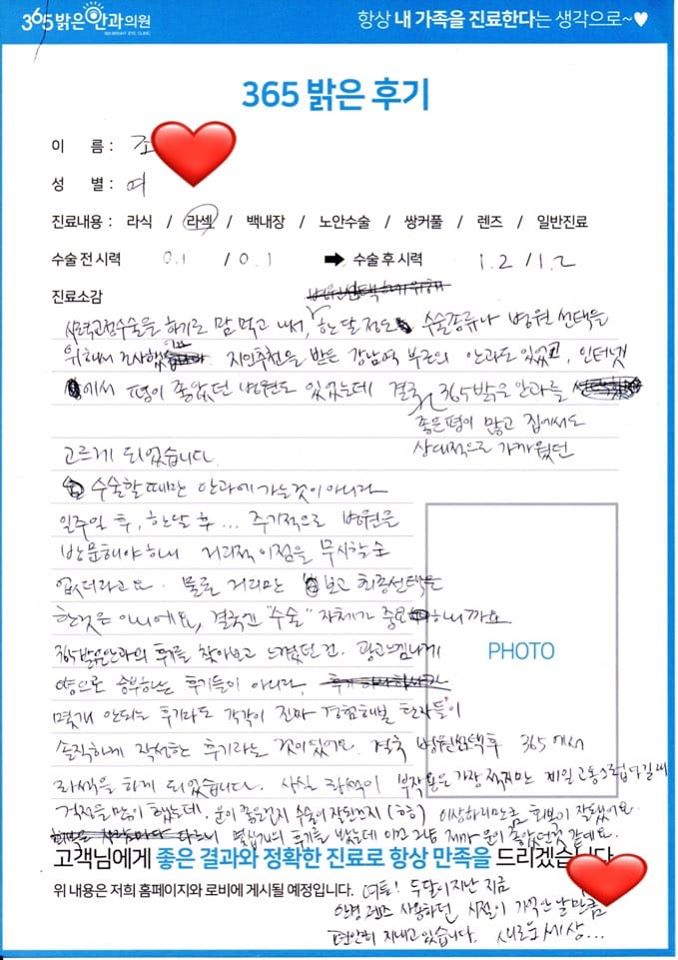 365밝은안과의원
365 BRIGHT EYE CLINIC
항상 내 가족을 진료한다는 생각으로~♥
365 밝은 후기
이 름 : 조
성 별 : 여
진료내용 : 라식 / 라섹 / 백내장 / 노안수술 / 쌍커풀 / 렌즈 / 일반진료
수술 전 시력 0.1 / 0.1 ➡ 수술 후 시력 1.2 / 1.2
진료소감
시력교정수술을 하기로 맘 먹고 나서, 한 달 정도 수술종류나 병원 선택을
위해서 조사했고요 지인추천을 받은 강남역 부근의 안과도 있었고, 인터넷
에서 평이 좋았던 병원도 있었는데 결국 365밝은안과를
좋은평이 많고 집에서도
상대적으로 가까웠던
고르게 되었습니다.
수술할 때만 안과에 가는것이 아니라
일주일 후, 한달 후 ... 주기적으로 병원을
방문해야하니 거리적 이점을 무시할 순
없더라고요. 물론 거리만 보고 최종선택을
한것은 아니에요, 결국엔 "수술" 자체가 중요하니까요
365밝은안과의 후기를 찾아보고 느꼈던 건, 광고느낌나게
양으로 승부하는 후기들이 아니라,
몇개 안되는 후기라도 각각이 진짜 경험해본 환자들이
솔직하게 작성한 후기라는 것이었어요. 결국 병원선택후 365에서
라섹을 하게 되었습니다. 사실 라섹이 부작용은 가장 적지만 제일 고통스럽다길래
걱정을 많이 했는데, 운이 좋은건지 수술이 잘된건지 (하하) 이상하리만큼 회복이 잘됐어요.
몇십개의 후기를 봤는데 이건 그냥 제가 운이 좋았던것 같네요.
고객님에게 좋은 결과와 정확한 진료로 항상 만족을 드리겠습니다.
위 내용은 저희 홈페이지와 로비에 게시될 예정입니다.
여튼! 두달이 지난 지금
안경 렌즈 사용하던 시절이 기억 안 날 만큼
편안히 지내고 있습니다. 새로운 세상...
PHOTO